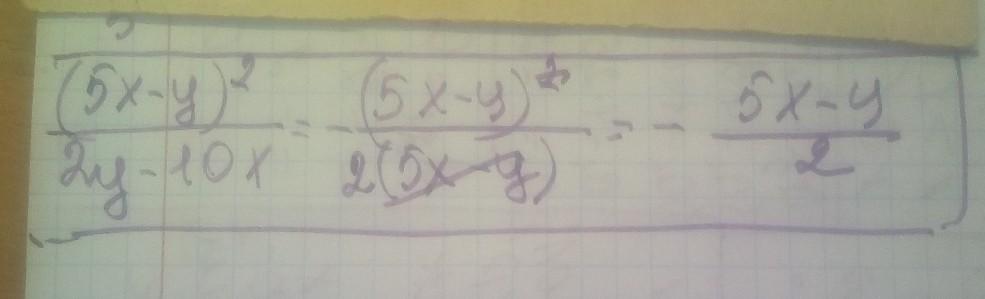 (5x-y)²/(2y-10x) = -(5x-y)²/(2(5x-y)) = - (5x-y)/2